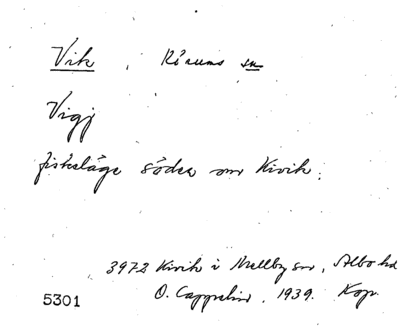 Vik, Rörums sn
Vigj
fiskeläge söder om Kivik.
3972 Kivik i Mellby sn, Albo hd
O. Cappelin, 1939. Kop.
5301